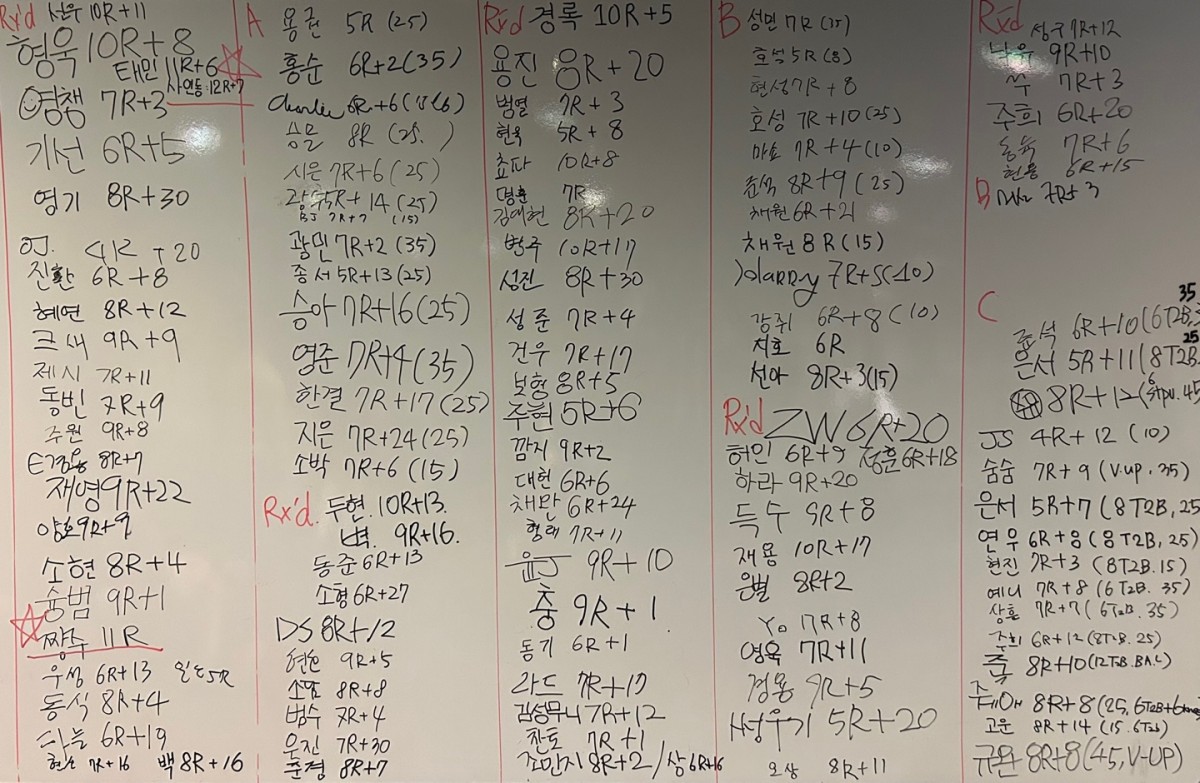 Rx'd 선우 10R+11
형욱 10R+8
태민 11R+6
사연동 12R+7
영챈 7R+3
기선 6R+5
영기 8R+30
OJ. +20
진환 6R+8
혜연 8R+12
크새 9R+9
제시 7R+11
동빈 7R+9
주원 9R+8
8R+7
재영 9R+22
양호 9R+9
소현 8R+4
승범 9R+1
짱주 11R
우성 6R+13 5R
동식 8R+4
하늘 6R+19
현수 7R+16 백 8R+16
A 용근 5R (25)
홍순 6R+2 (35)
Charlie 6R+6
승문 8R (25.)
시은 7R+6 (25)
5R+14 (25)
BJ 7R+7 (15)
광민 7R+2 (35)
종서 5R+13 (25)
승아 7R+16 (25)
영준 7R+4 (35)
한결 7R+17 (25)
지은 7R+24 (25)
소박 7R+6 (15)
Rx'd. 두현. 10R+13.
9R+16.
동준 6R+13
소형 6R+27
DS 8R+12
9R+5
8R+8
범수 7R+4
은진 7R+30
준경 8R+7
Rx'd 경록 10R+5
용진 8R+20
범열 7R+3
현욱 5R+8
쵸파 10R+8
명훈 7R
김예현 8R+20
범주 10R+17
성진 8R+30
성준 7R+4
건우 7R+17
보형 8R+5
주현 5R+6
깜지 9R+2
대현 6R+6
채만 6R+24
형래 7R+11
윤J 9R+10
충 9R+1
동기 6R+1
라드 7R+17
김성무니 7R+12
찬토 7R+1
조만지 8R+2 / 삼 6R+16
B 성민 7R (15)
호석 5R (8)
현성 7R+8
호성 7R+10 (25)
마요 7R+4 (10)
준석 8R+9 (25)
채원 6R+21
채원 8R (15)
7R+5 (10)
강쥐 6R+8 (10)
지호 6R
선아 8R+3 (15)
Rx'd ZW 6R+20
허인 6R+9 정훈 6R+18
하라 9R+20
득수 9R+8
재용 10R+17
은별 8R+2
Yo 7R+8
영욱 7R+11
경용 9R+5
5R+20
오상 8R+11
Rx'd 성구 7R+12
9R+10
쑤 7R+3
주희 6R+20
동욱 7R+6
현용 6R+15
B 7R+3
C
준석 6R+10 (6T2B, 35
은서 5R+11 (8T2B. 25
8R+12
JS 4R+12 (10)
숨숨 7R+9 (V-up, 35)
은서 5R+7 (8T2B, 25
연우 6R+8 (8T2B, 25)
현진 7R+3 (8T2B. 15)
예니 7R+8 (6T2B. 35)
상훈 7R+7 (6T2B. 35)
주희 6R+12 (8T2B. 25)
죽 8R+10 (12T2B.
8R+8 (25, 6T2B+
고운 8R+14 (15. 6T2B)
규환 8R+8 (45, V-UP)